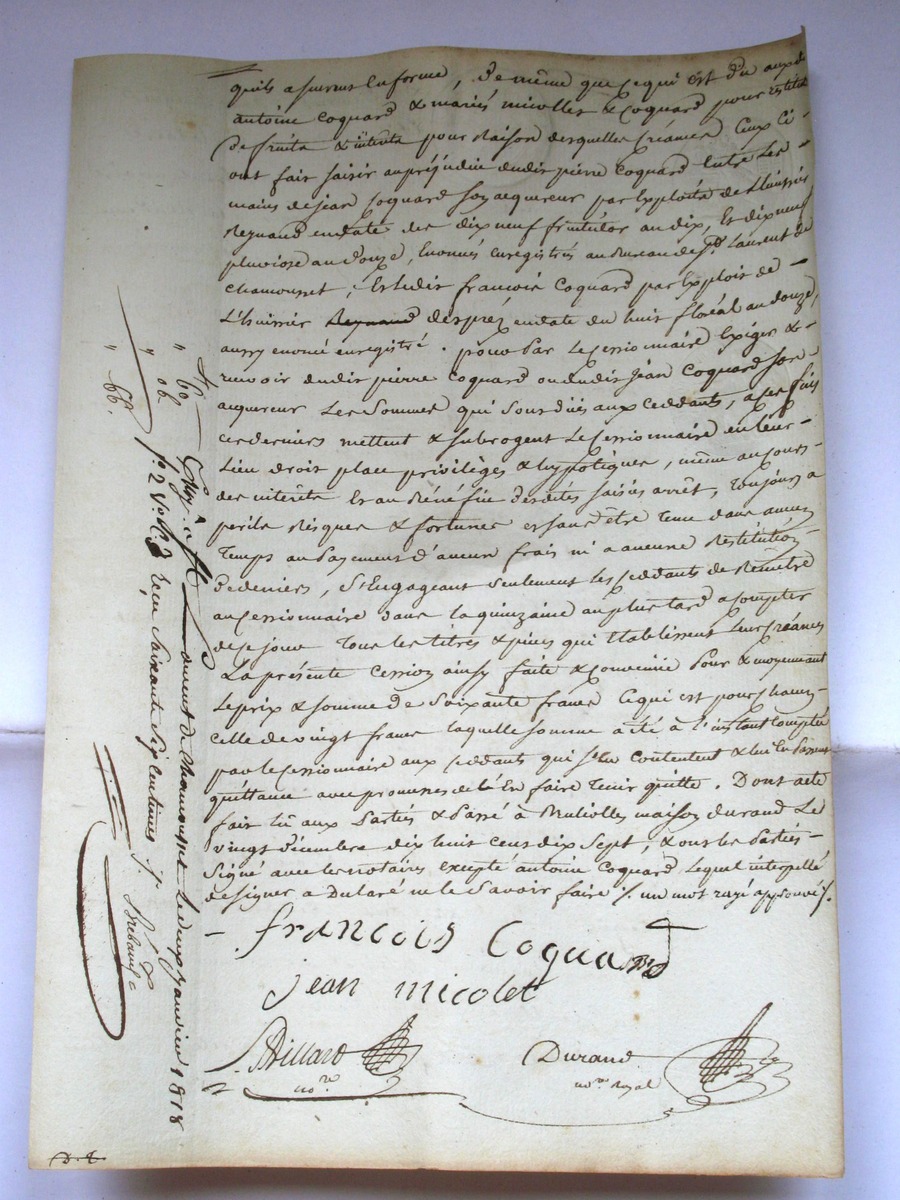 quils assurent en forme, de même que ce qui est dû auxdts
antoine Coquard & mariés micollet & Coquard pour restitut
de fruits & intérêts pour Raison desquelles créances Ceux Ci -
ont fait saisir au préjudice dudit pierre Coquard Entre les -
mains de jean Coquard son acquereur par Exploits de L'huissier
Reynaud en date des dix neuf fructidor an dix, Et dix neuf
pluviose an douze, Enoncés enregistrés au Bureau de St. Laurent de
chamousset; Et ledit francois Coquard par Exploit de -
L'huissier Reynaud despréz en date du huit floréal an douze,
aussy enoncé enregistré. pour par Le Cessionnaire Exiger & -
recevoir dudit pierre Coquard ou dudit jean Coquard son -
acquereur Les Sommes qui sont düés aux Ceddants, a ces fins
ces derniers mettent & subrogent Le Cessionnaire en leur -
Lieu droit place privilèges & hypotèques, même au cours -
des intérêts Et au Bénéfice desdites saisies arrêt, Toujours a
perils Risques & fortunes et sans être Tenu dans aucun
Temps au payement d'aucun frais ni a aucune Restitution
de deniers, S'Engageant seulement les Ceddants de Remettre
au Cessionnaire dans la quinzaine au plus tard a compter
de ce jour Tous les titres & pièces qui Etablissent leur Créances
La présente Cession ainsy faite & convenüe Pour & moyennant
Le prix & somme de Soixante francs Ce qui est pour chacun
celle de vingt francs laquelle somme a été à l'instant Comptée
par le Cessionnaire aux Ceddants qui s'en Contentent & lui En passent
quittance avec promesse de l'En faire Tenir quitte. Dont acte
fait lû aux Parties & Passé à maison durand Le
vingt décembre dix huit cent dix Sept, & ont les Parties -
Signé avec les notaires excepté antoine Coquard Lequel interpellé
de signer a Déclaré ne le Savoir faire /. un mot rayé approuvé /.
francois Coquard
jean micolet
Billard
nore
Durand
nore Royal
Enrgé. à St Laurent de Chamousset Le deux janvier 1818
fo. 2 Vo. Co. 3 reçu Soixante Six centimes
" 60
" 06
" 66.